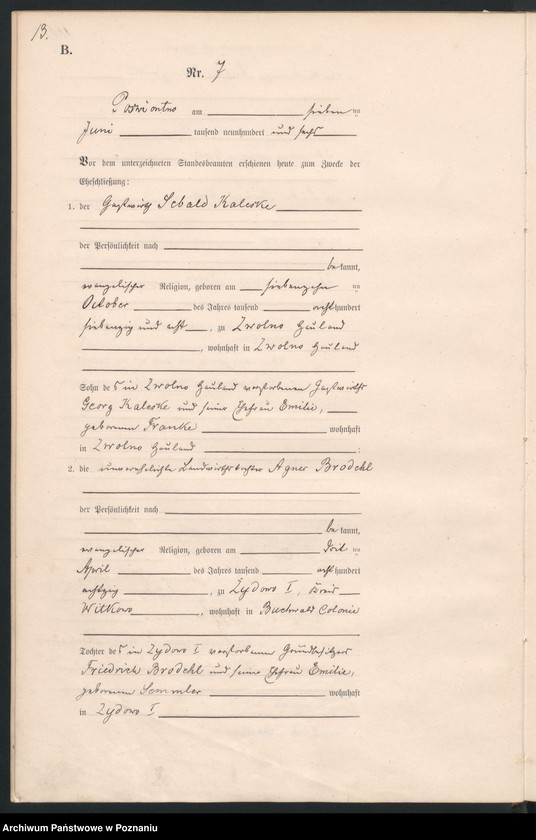 13.
B.
Nr. 7
am sieben ten
Juni tausend neunhundert und sechs
Vor dem unterzeichneten Standesbeamten erschienen heute zum Zwecke der
Eheschließung:
1. der Gastwirth Sebald Kaleske
der Persönlichkeit nach
be kannt,
evangelischer Religion, geboren am siebenzehn ten
October des Jahres tausend acht hundert
siebenzig und acht, zu Zwolno Hauland
, wohnhaft in Zwolno Hauland
Sohn des in Zwolno Hauland verstorbenen Gastwirths
Georg Kaleske und seine Ehefrau Emilie,
geborenen Franke wohnhaft
in Zwolno Hauland ;
2. die unverehelichte Landwirthstochter Agnes Brodehl
der Persönlichkeit nach
be kannt,
evangelischer Religion, geboren am drit ten
April des Jahres tausend acht hundert
achtzig, zu Zydowo I, Kreis
Witkowo, wohnhaft in Buchwald Colonie
Tochter des in Zydowo I verstorbenen Grundbesitzers
Friedrich Brodehl und seine Ehefrau Emilie,
geborenen Semmler wohnhaft
in Zydowo I
Archiwum Państwowe w Poznaniu